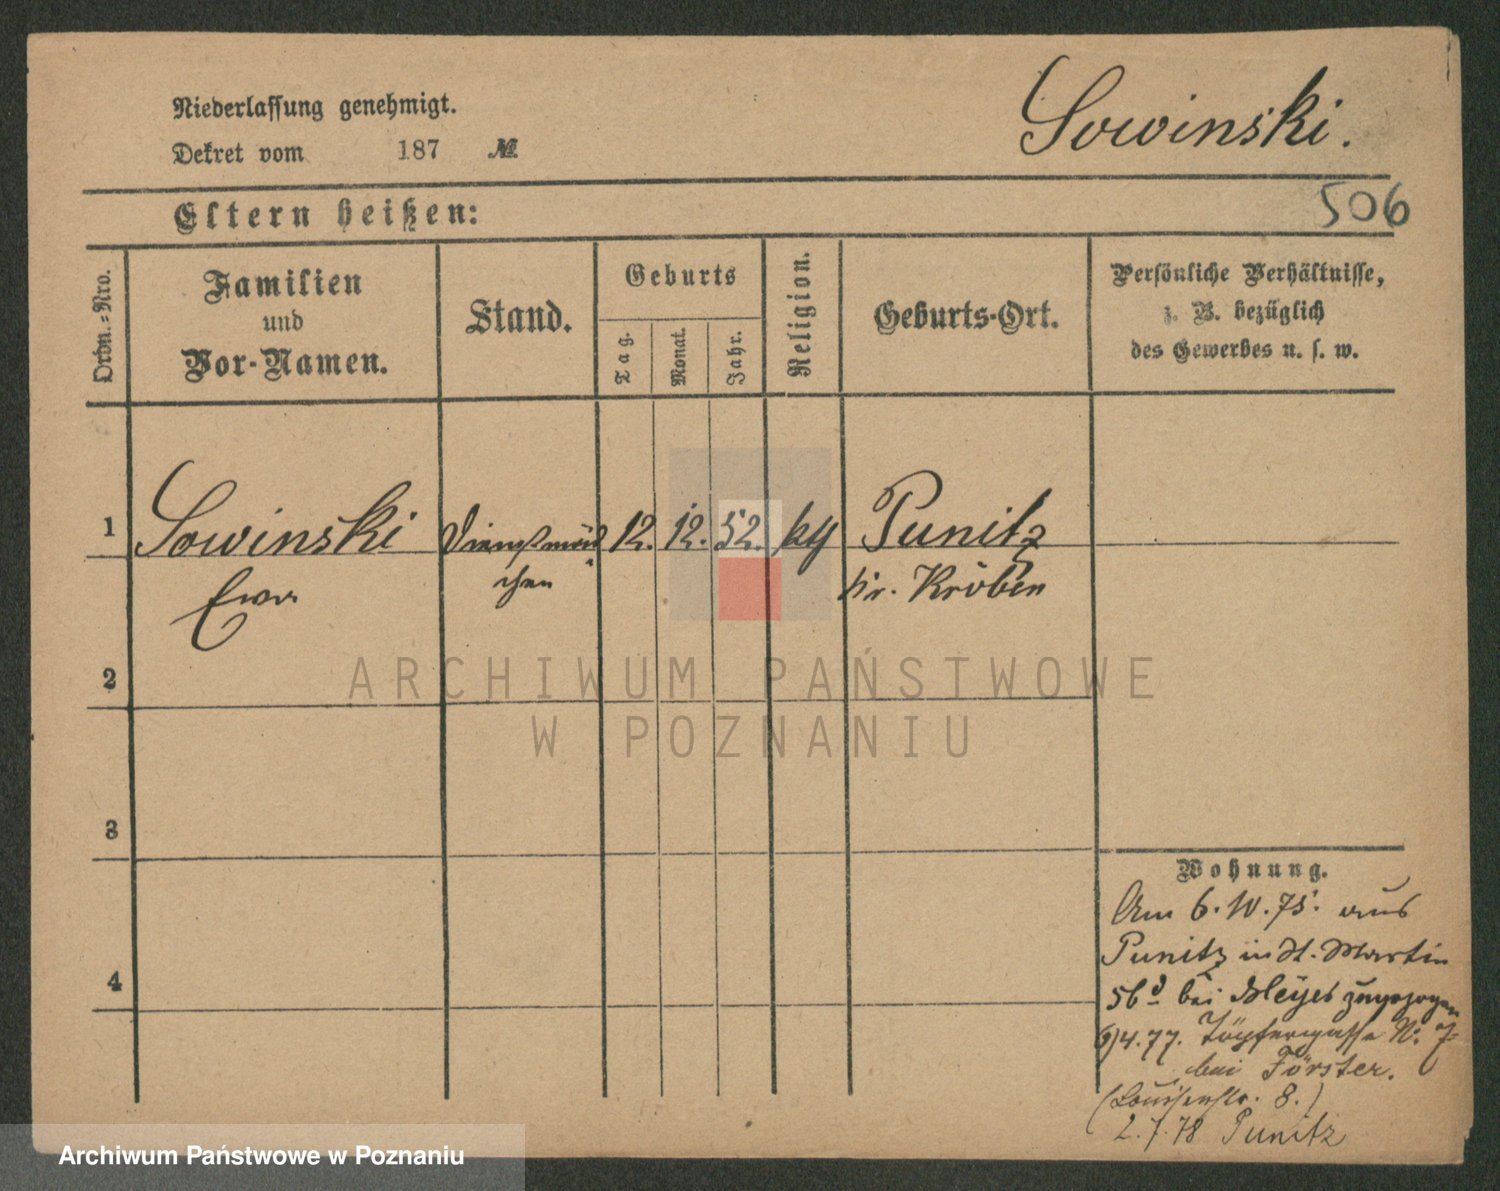 Niederlassung genehmigt.
Dekret vom 187 №
Sowinski.
506
Eltern heißen:
Ordn.-Nro.
Familien
und
Vor-Namen.
Stand.
Geburts
Tag.
Monat.
Jahr.
Religion.
Geburts-Ort.
Persönliche Verhältnisse,
z. B. bezüglich
des Gewerbes u. s. w.
1 Sowinski Dienstmäd 12. 12. 52. Punitz
Ewa chen Kr. Kröben
2
3
4
Wohnung.
Am 6.10.75. aus
Punitz in St. Martin
56 bei zugezogen
4.77. Töpfergasse N: 7
bei Förster.
(Louisenstr. 8.)
2.7.78 Punitz
ARCHIWUM PAŃSTWOWE
W POZNANIU
Archiwum Państwowe w Poznaniu